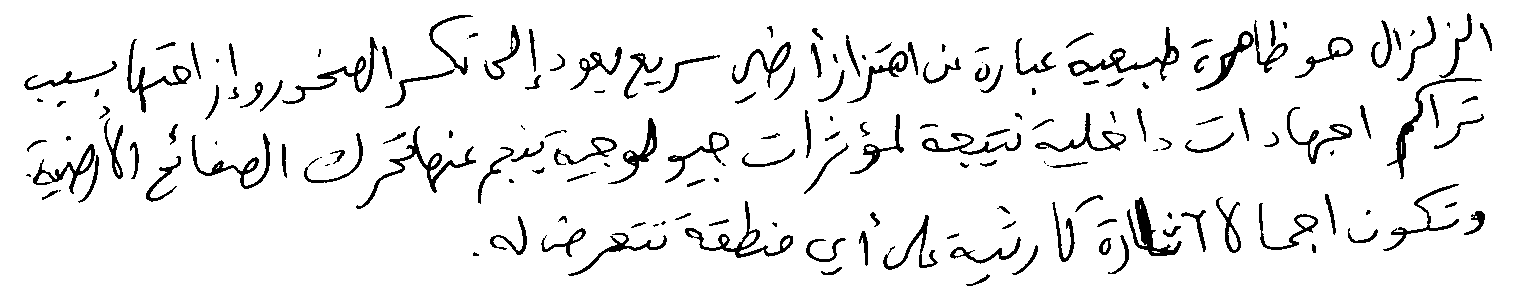 الزلزال هو ظاهرة طبيعية عبارة عن اهتزاز أرضي سريع يعود إلى تكسر الصخور وإزاحتها بسبب
تراكم اجهادات داخلية نتيجة لمؤثرات جيولوجية ينجم عنها تحرك الصفائح الأرضية
وتكون اجمالا آثاره كارثية على أي منطقة تتعرض له.